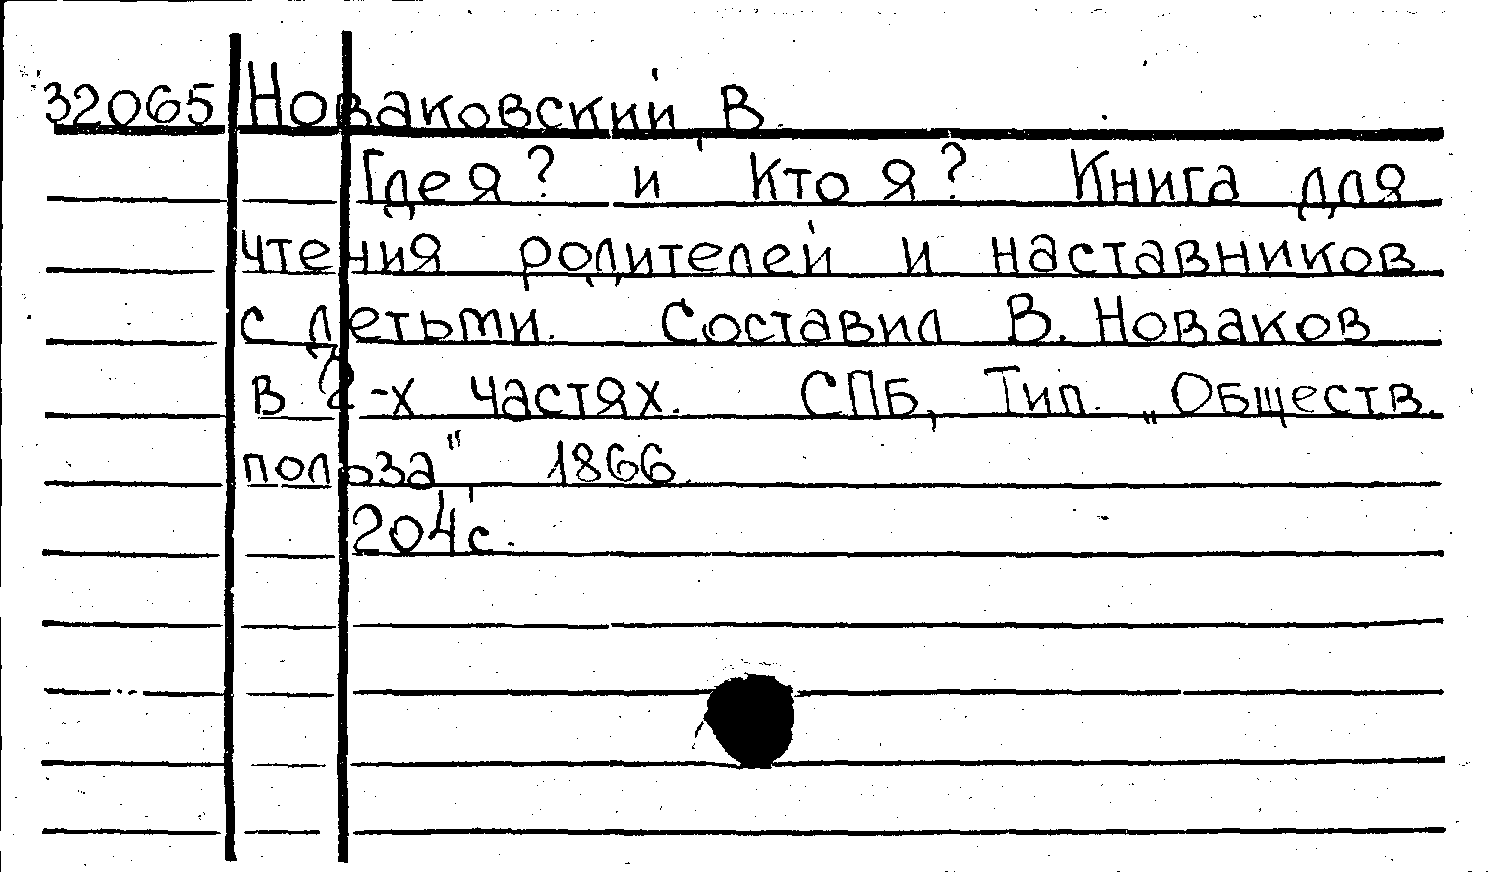 32065 Новаковский, В.
Где я? и Кто я? Книга для
чтения родителей и наставников
с детьми. Составил В. Новаков
в 2-х частях. СПБ, Тип. „Обществ.
польза" 1866.
204 с.